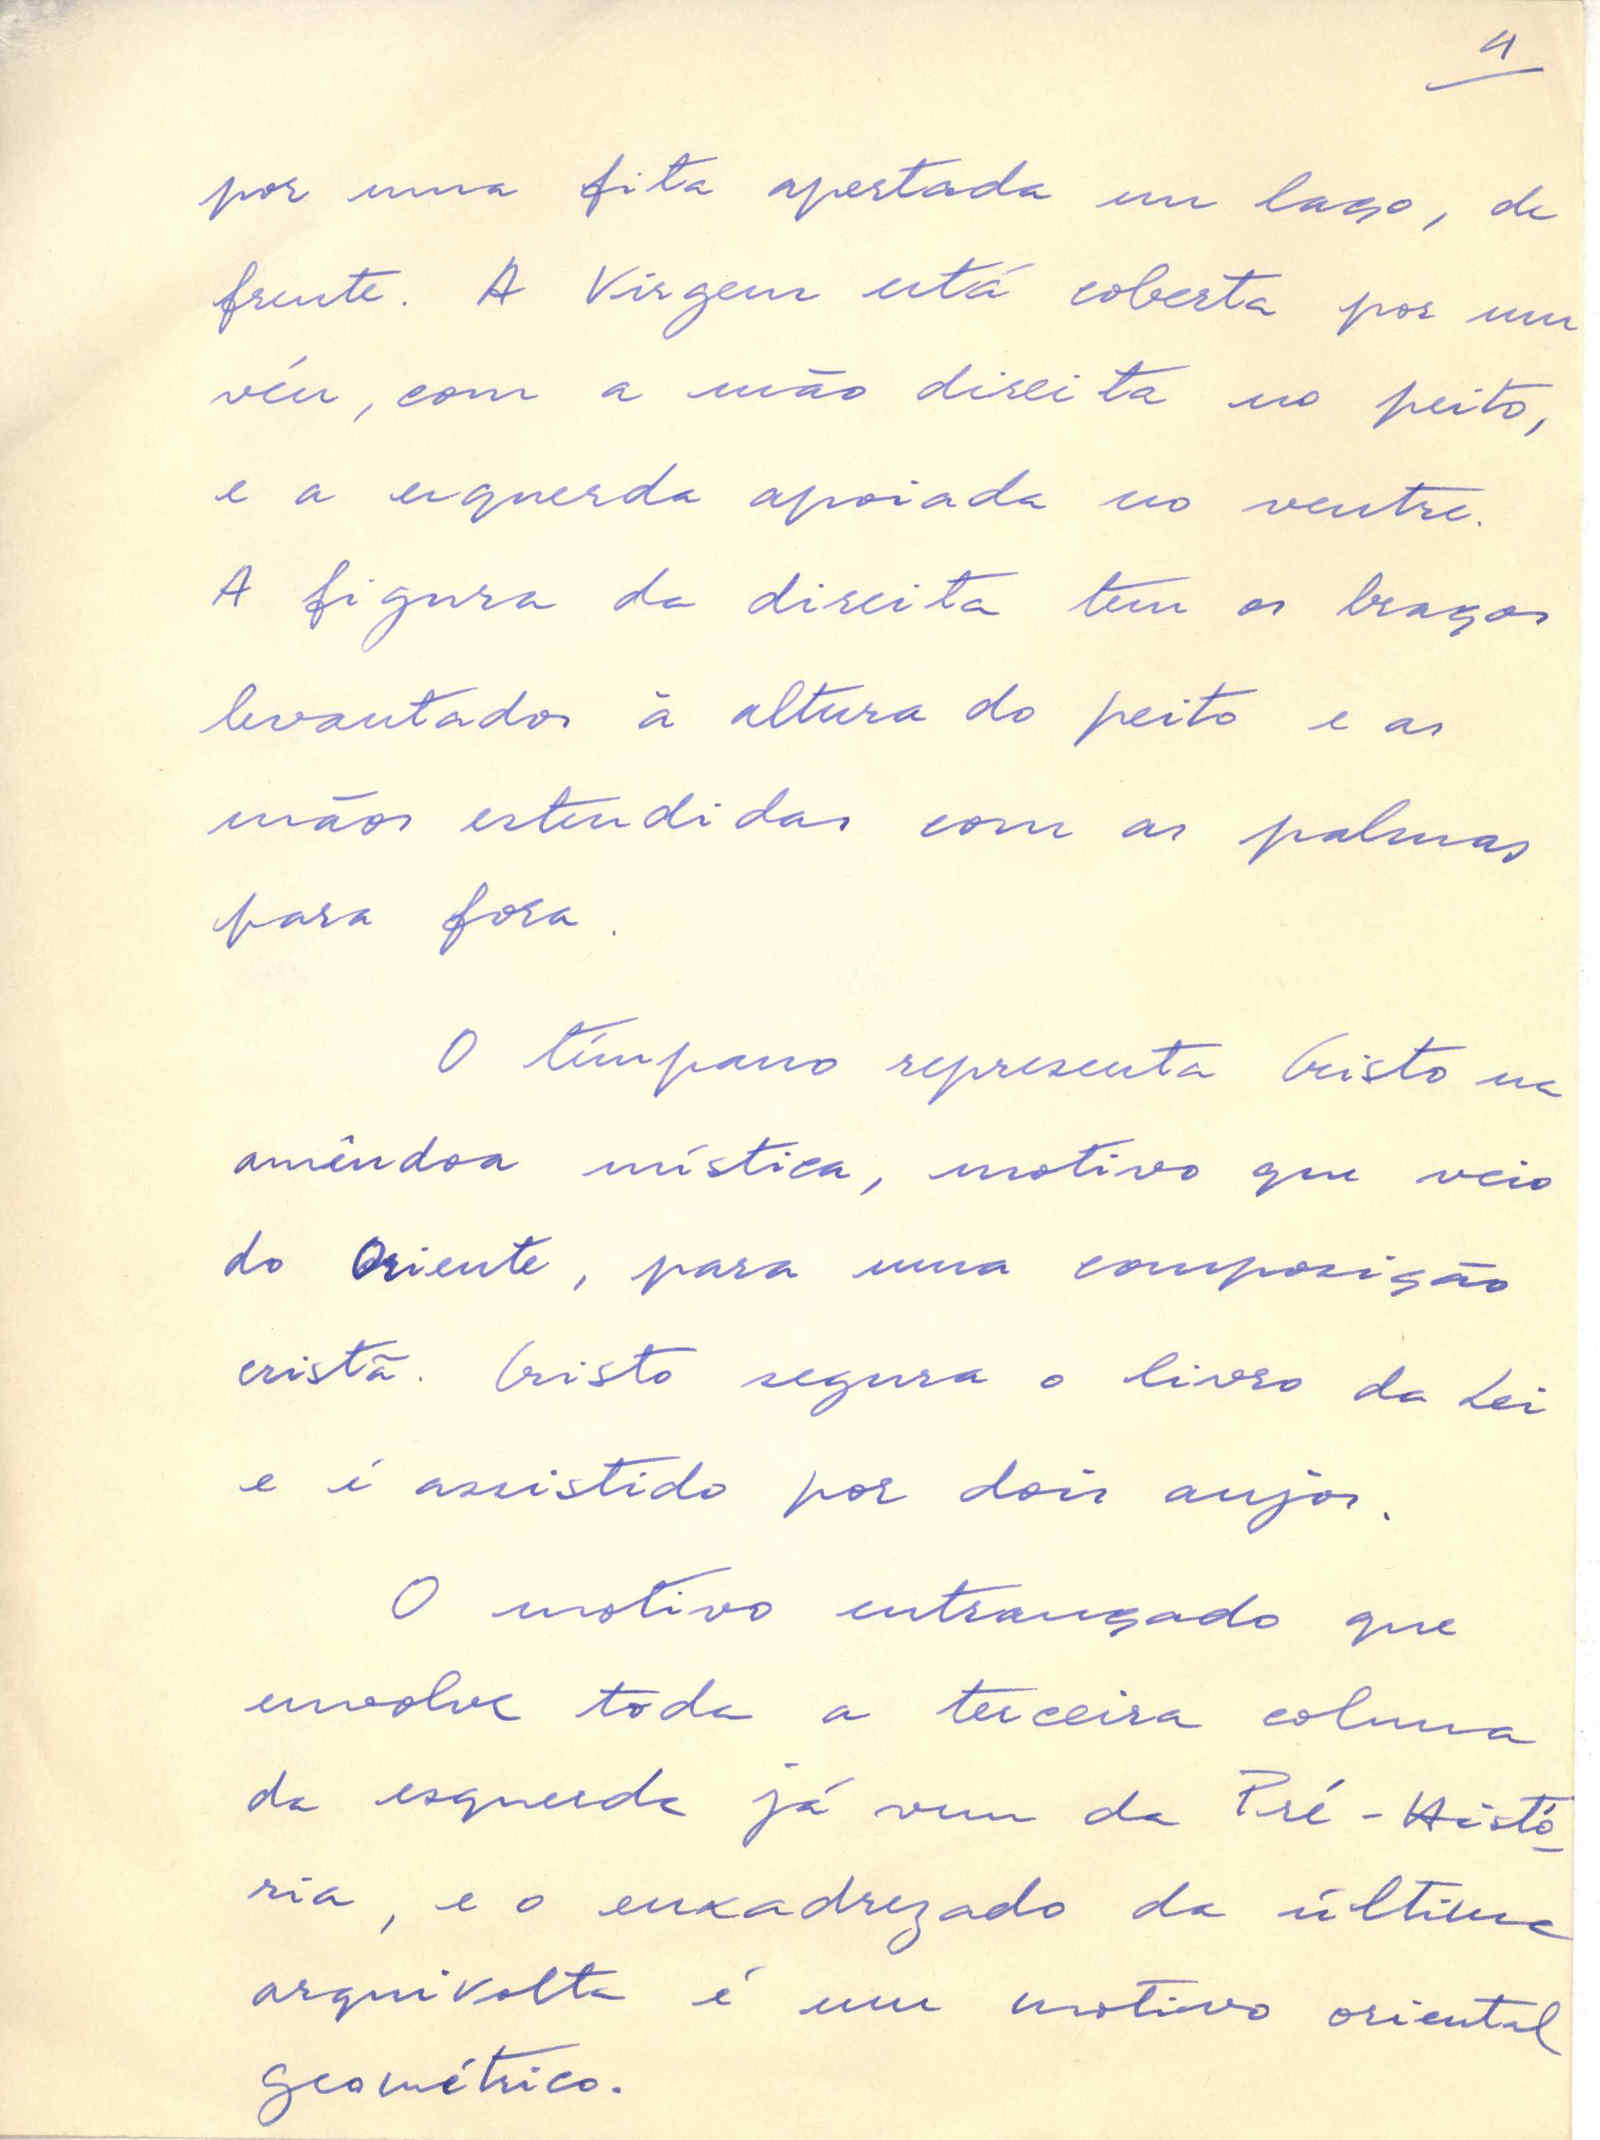 4
por uma fita apertada em laço, de
frente. A Virgem está coberta por um
véu, com a mão direita no peito,
e a esquerda apoiada no ventre.
A figura da direita tem os braços
levantados à altura do peito e as
mãos estendidas com as palmas
para fora.
O tímpano representa Cristo na
amêndoa mística, motivo que veio
do Oriente, para uma composição
cristã. Cristo segura o livro da Lei
e é assistido por dois anjos.
O motivo entrançado que
envolve toda a terceira coluna
da esquerda já vem da Pré-Histó-
ria, e o enxadrezado da última
arquivolta é um motivo oriental
geométrico.